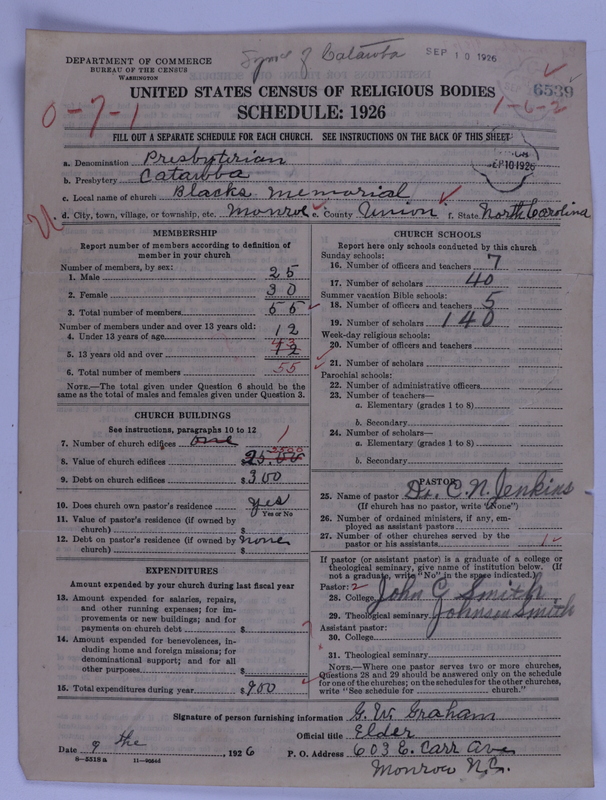 Synod of Catawba
SEP 10 1926
DEPARTMENT OF COMMERCE
BUREAU OF THE CENSUS
WASHINGTON
UNITED STATES CENSUS OF RELIGIOUS BODIES
6539
SCHEDULE: 1926
0-7-1
1-6-2
FILL OUT A SEPARATE SCHEDULE FOR EACH CHURCH. SEE INSTRUCTIONS ON THE BACK OF THIS SHEET
SEP 10 1926
a. Denomination Presbyterian
b. Presbytery Catawba
c. Local name of church Blacks Memorial
d. City, town, village, or township, etc. Monroe e. County Union f. State North Carolina
MEMBERSHIP
Report number of members according to definition of
member in your church
Number of members, by sex:
1. Male 25
2. Female 30
3. Total number of members 55
Number of members under and over 13 years old:
4. Under 13 years of age 12
5. 13 years old and over 43
6. Total number of members 55
NOTE.—The total given under Question 6 should be the
same as the total of males and females given under Question 3.
CHURCH BUILDINGS
See instructions, paragraphs 10 to 12
7. Number of church edifices one 1
8. Value of church edifices $
9. Debt on church edifices $300
10. Does church own pastor's residence yes
Yes or No
11. Value of pastor's residence (if owned by
church) $
12. Debt on pastor's residence (if owned by none
church) $
EXPENDITURES
Amount expended by your church during last fiscal year
13. Amount expended for salaries, repairs,
and other running expenses; for im-
provements or new buildings; and for
payments on church debt $
14. Amount expended for benevolences, in-
cluding home and foreign missions; for
denominational support; and for all
other purposes $
15. Total expenditures during year $900
CHURCH SCHOOLS
Report here only schools conducted by this church
Sunday schools:
16. Number of officers and teachers 7
17. Number of scholars 40
Summer vacation Bible schools:
18. Number of officers and teachers 5
19. Number of scholars 140
Week-day religious schools:
20. Number of officers and teachers
21. Number of scholars
Parochial schools:
22. Number of administrative officers
23. Number of teachers—
a. Elementary (grades 1 to 8)
b. Secondary
24. Number of scholars—
a. Elementary (grades 1 to 8)
b. Secondary
PASTOR
25. Name of pastor Dr. C. N. Jenkins
(If church has no pastor, write "None")
26. Number of ordained ministers, if any, em-
ployed as assistant pastors
27. Number of other churches served by the
pastor or his assistants 1
If pastor (or assistant pastor) is a graduate of a college or
theological seminary, give name of institution below. (If
not a graduate, write "No" in the space indicated.)
Pastor: 2
28. College John C Smith
29. Theological seminary Johnson Smith
Assistant pastor:
30. College
31. Theological seminary
NOTE.—Where one pastor serves two or more churches,
Questions 28 and 29 should be answered only on the schedule
for one of the churches; on the schedules for the other churches,
write "See schedule for church."
Signature of person furnishing information G. W. Graham
Official title Elder
Date 9 the, 1926 P. O. Address 603 E. Carr Ave
Monroe N.C.